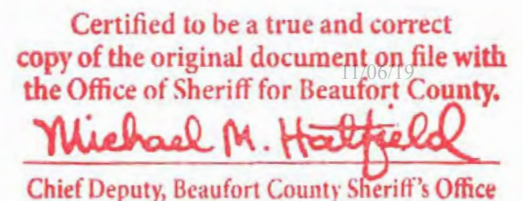 Certified to be a true and correct
copy of the original document on file with
11/06/19
the Office of Sheriff for Beaufort County.
Michael M. Hatfield
Chief Deputy, Beaufort County Sheriff's Office